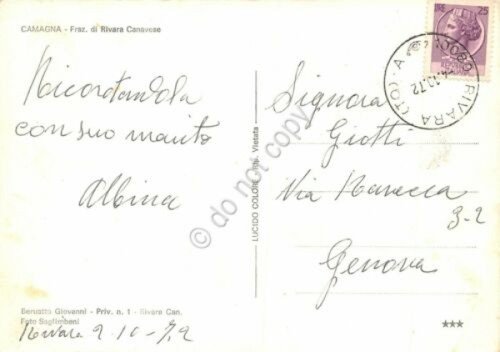 CAMAGNA - Fraz. di Rivara Canavese
LIRE 25
10080 RIVARA (TO) A
2.10.72
Ricordandola
con suo marito
Albina
Signora
Giotti
Via
3-2
Genova
LUCIDO COLORE Vietata
do not copy
Beruatto Giovanni - Priv. n. 1 - Rivara Can.
Foto Saglimbeni
Rivara 2 10-72
***